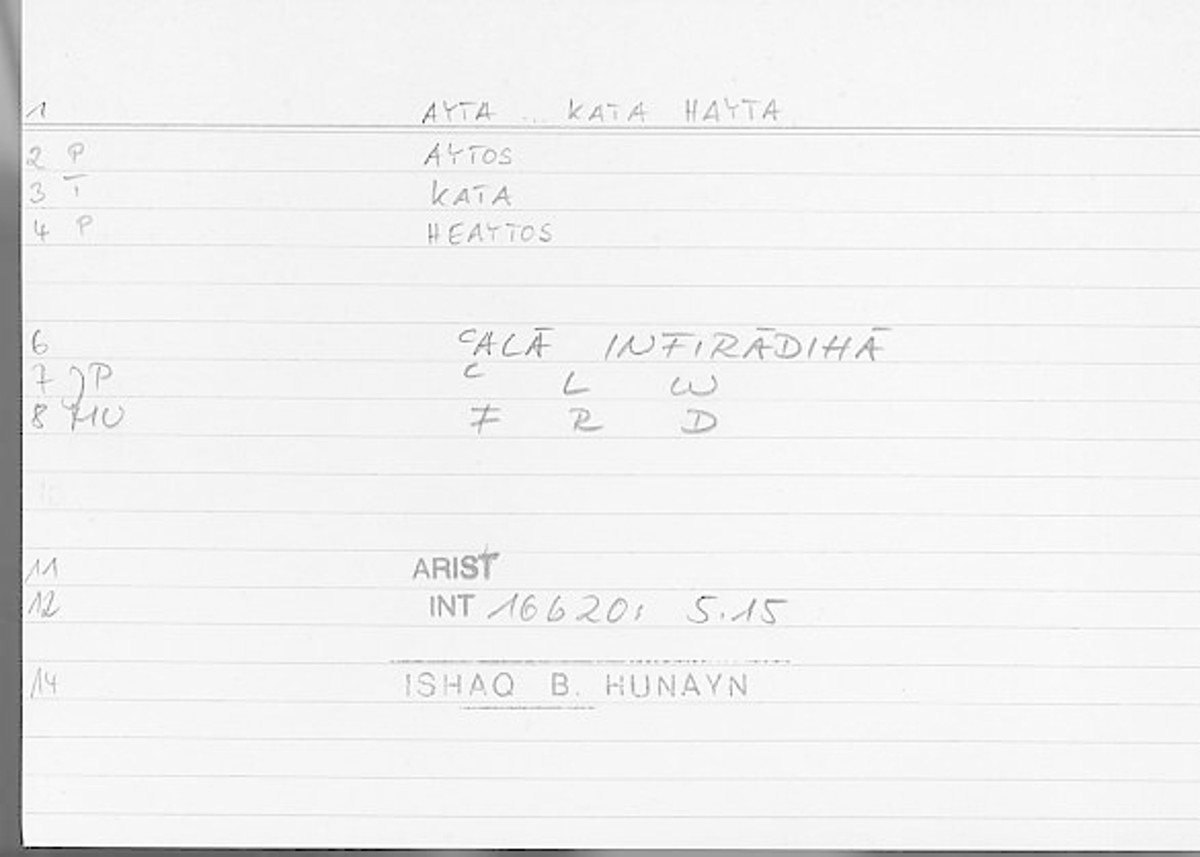 1 AYTA .. KATA HAYTA
2 P AYTOS
3 T KATA
4 P HEAYTOS
6 ʿALĀ INFIRĀDIHĀ
7 P ʿ L W
8 MU F R D
11 ARIST
12 INT 16620: 5.15
14 ISHAQ B. HUNAYN